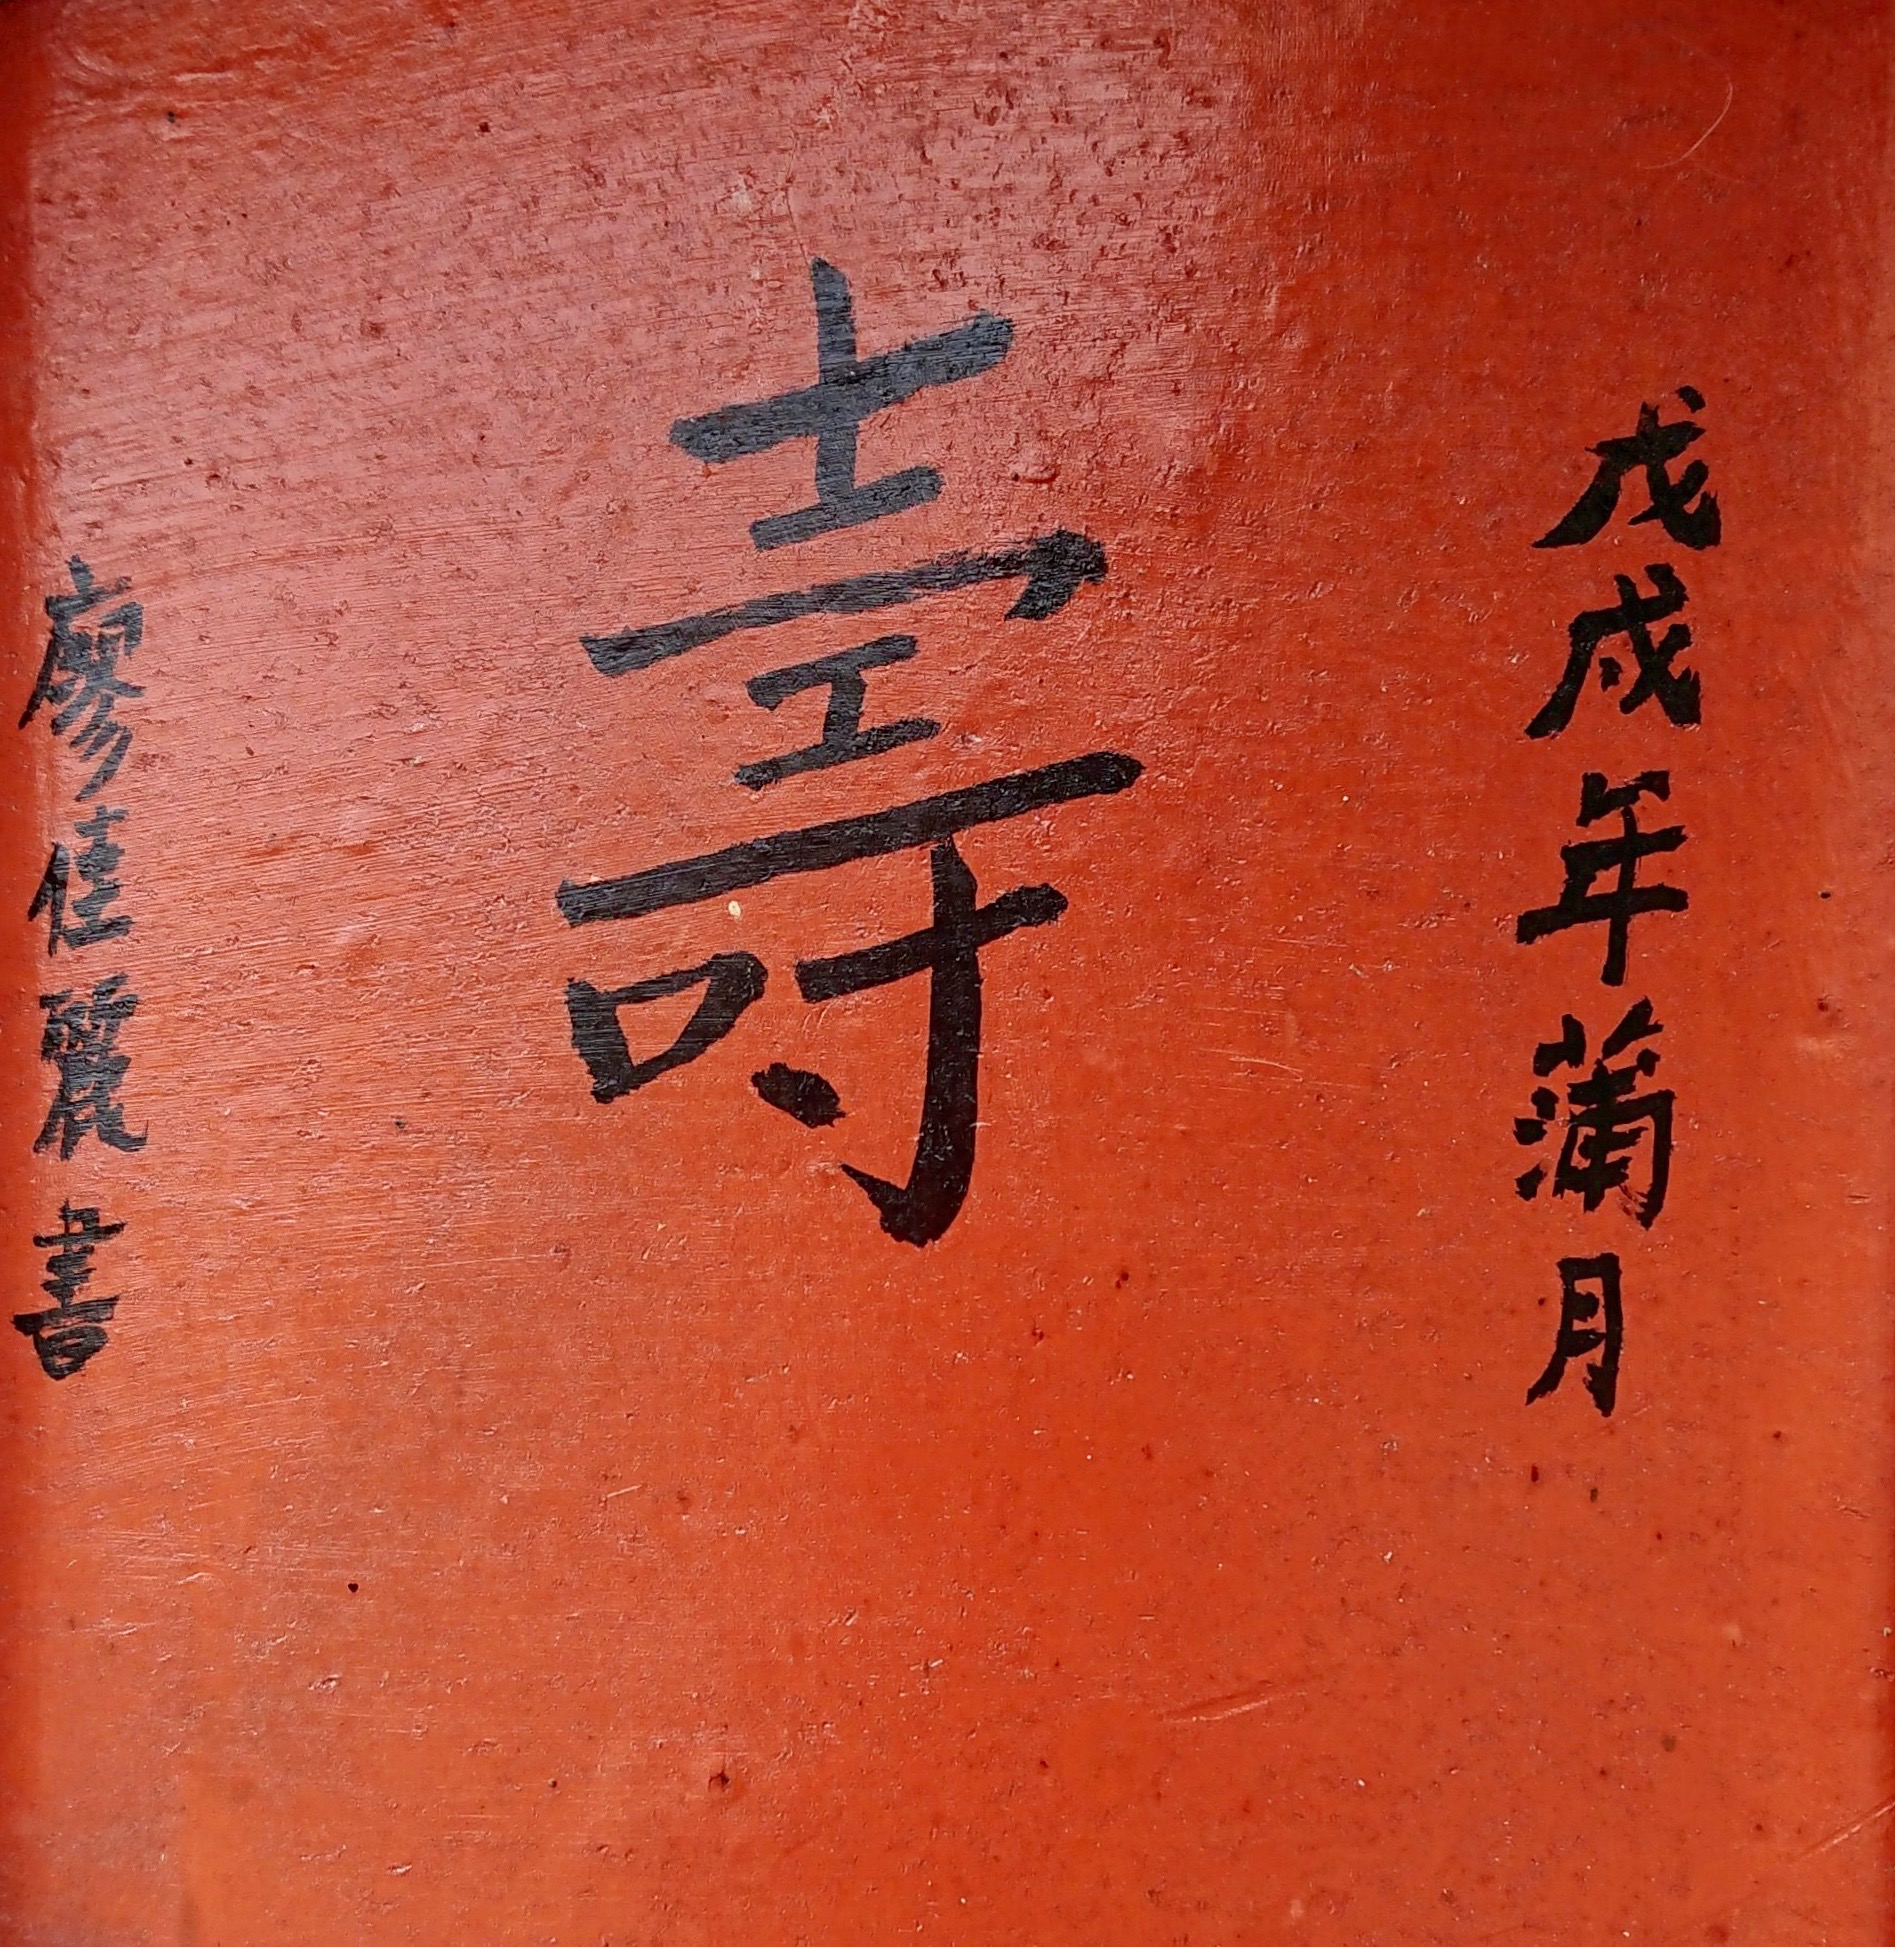 戊戌年蒲月
壽
廖佳麗書